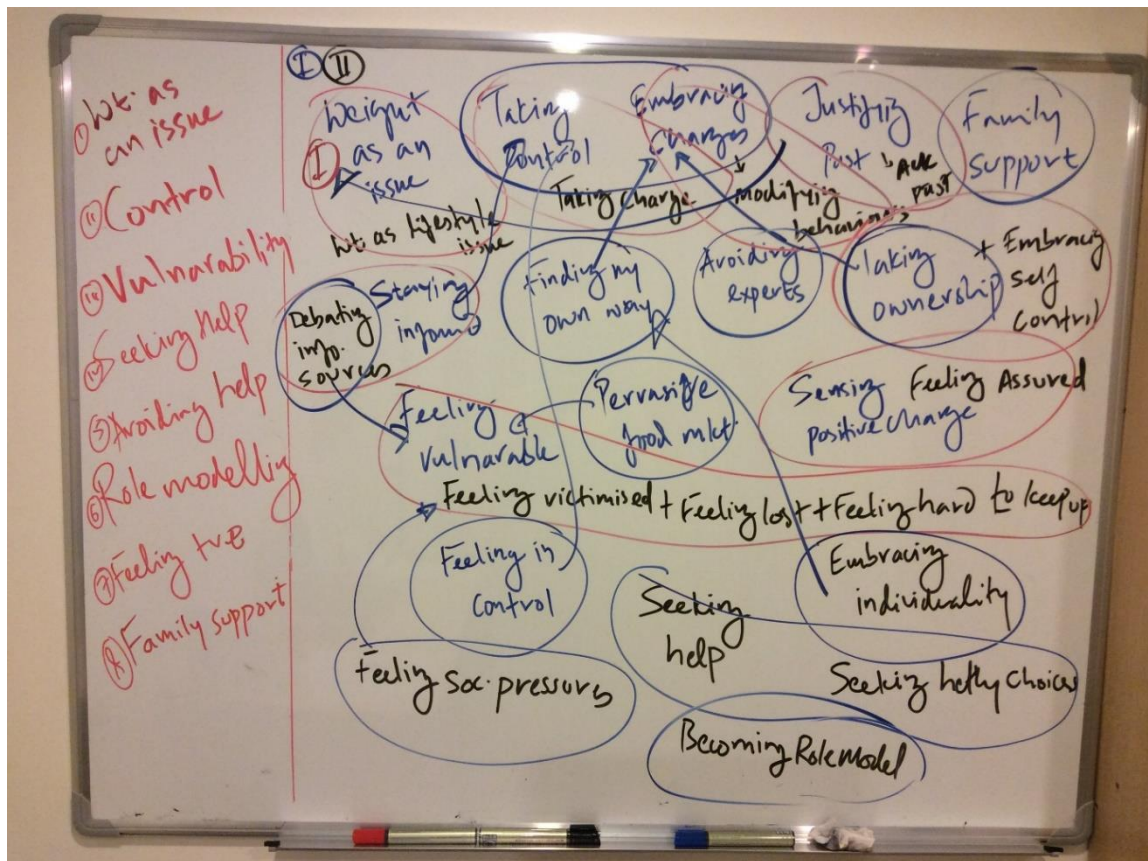 ① Wt. as
an issue
⑪ Control
Vulnarability
Seeking help
⑤ Avoiding help
⑥ Role modelling
⑦ Feeling +ve
Family support
I II
I
Weight
as an
issue
Wt as lifestyle
issue
Taking
Control
Embracing
Changes
Taking charge
↓
modifying
behaviours
Justifying
Past
↳ Ack
past
Family
support
Debating
info.
sources
Staying
informed
Finding my
own way
Avoiding
experts
Taking
ownership
+ Embracing
self
control
Feeling
Vulnarable
Pervasive
food mkt.
Sensing
positive change
Feeling Assured
Feeling victimised + Feeling lost + Feeling hard to keep up
Feeling in
control
Seeking
help
Embracing
individuality
Feeling soc. pressures
Seeking helthy choices
Becoming Role Model